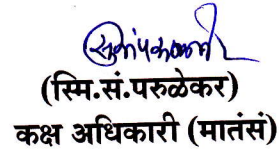 (स्मि.सं.परुळेकर)
कक्ष अधिकारी (मातंसं)